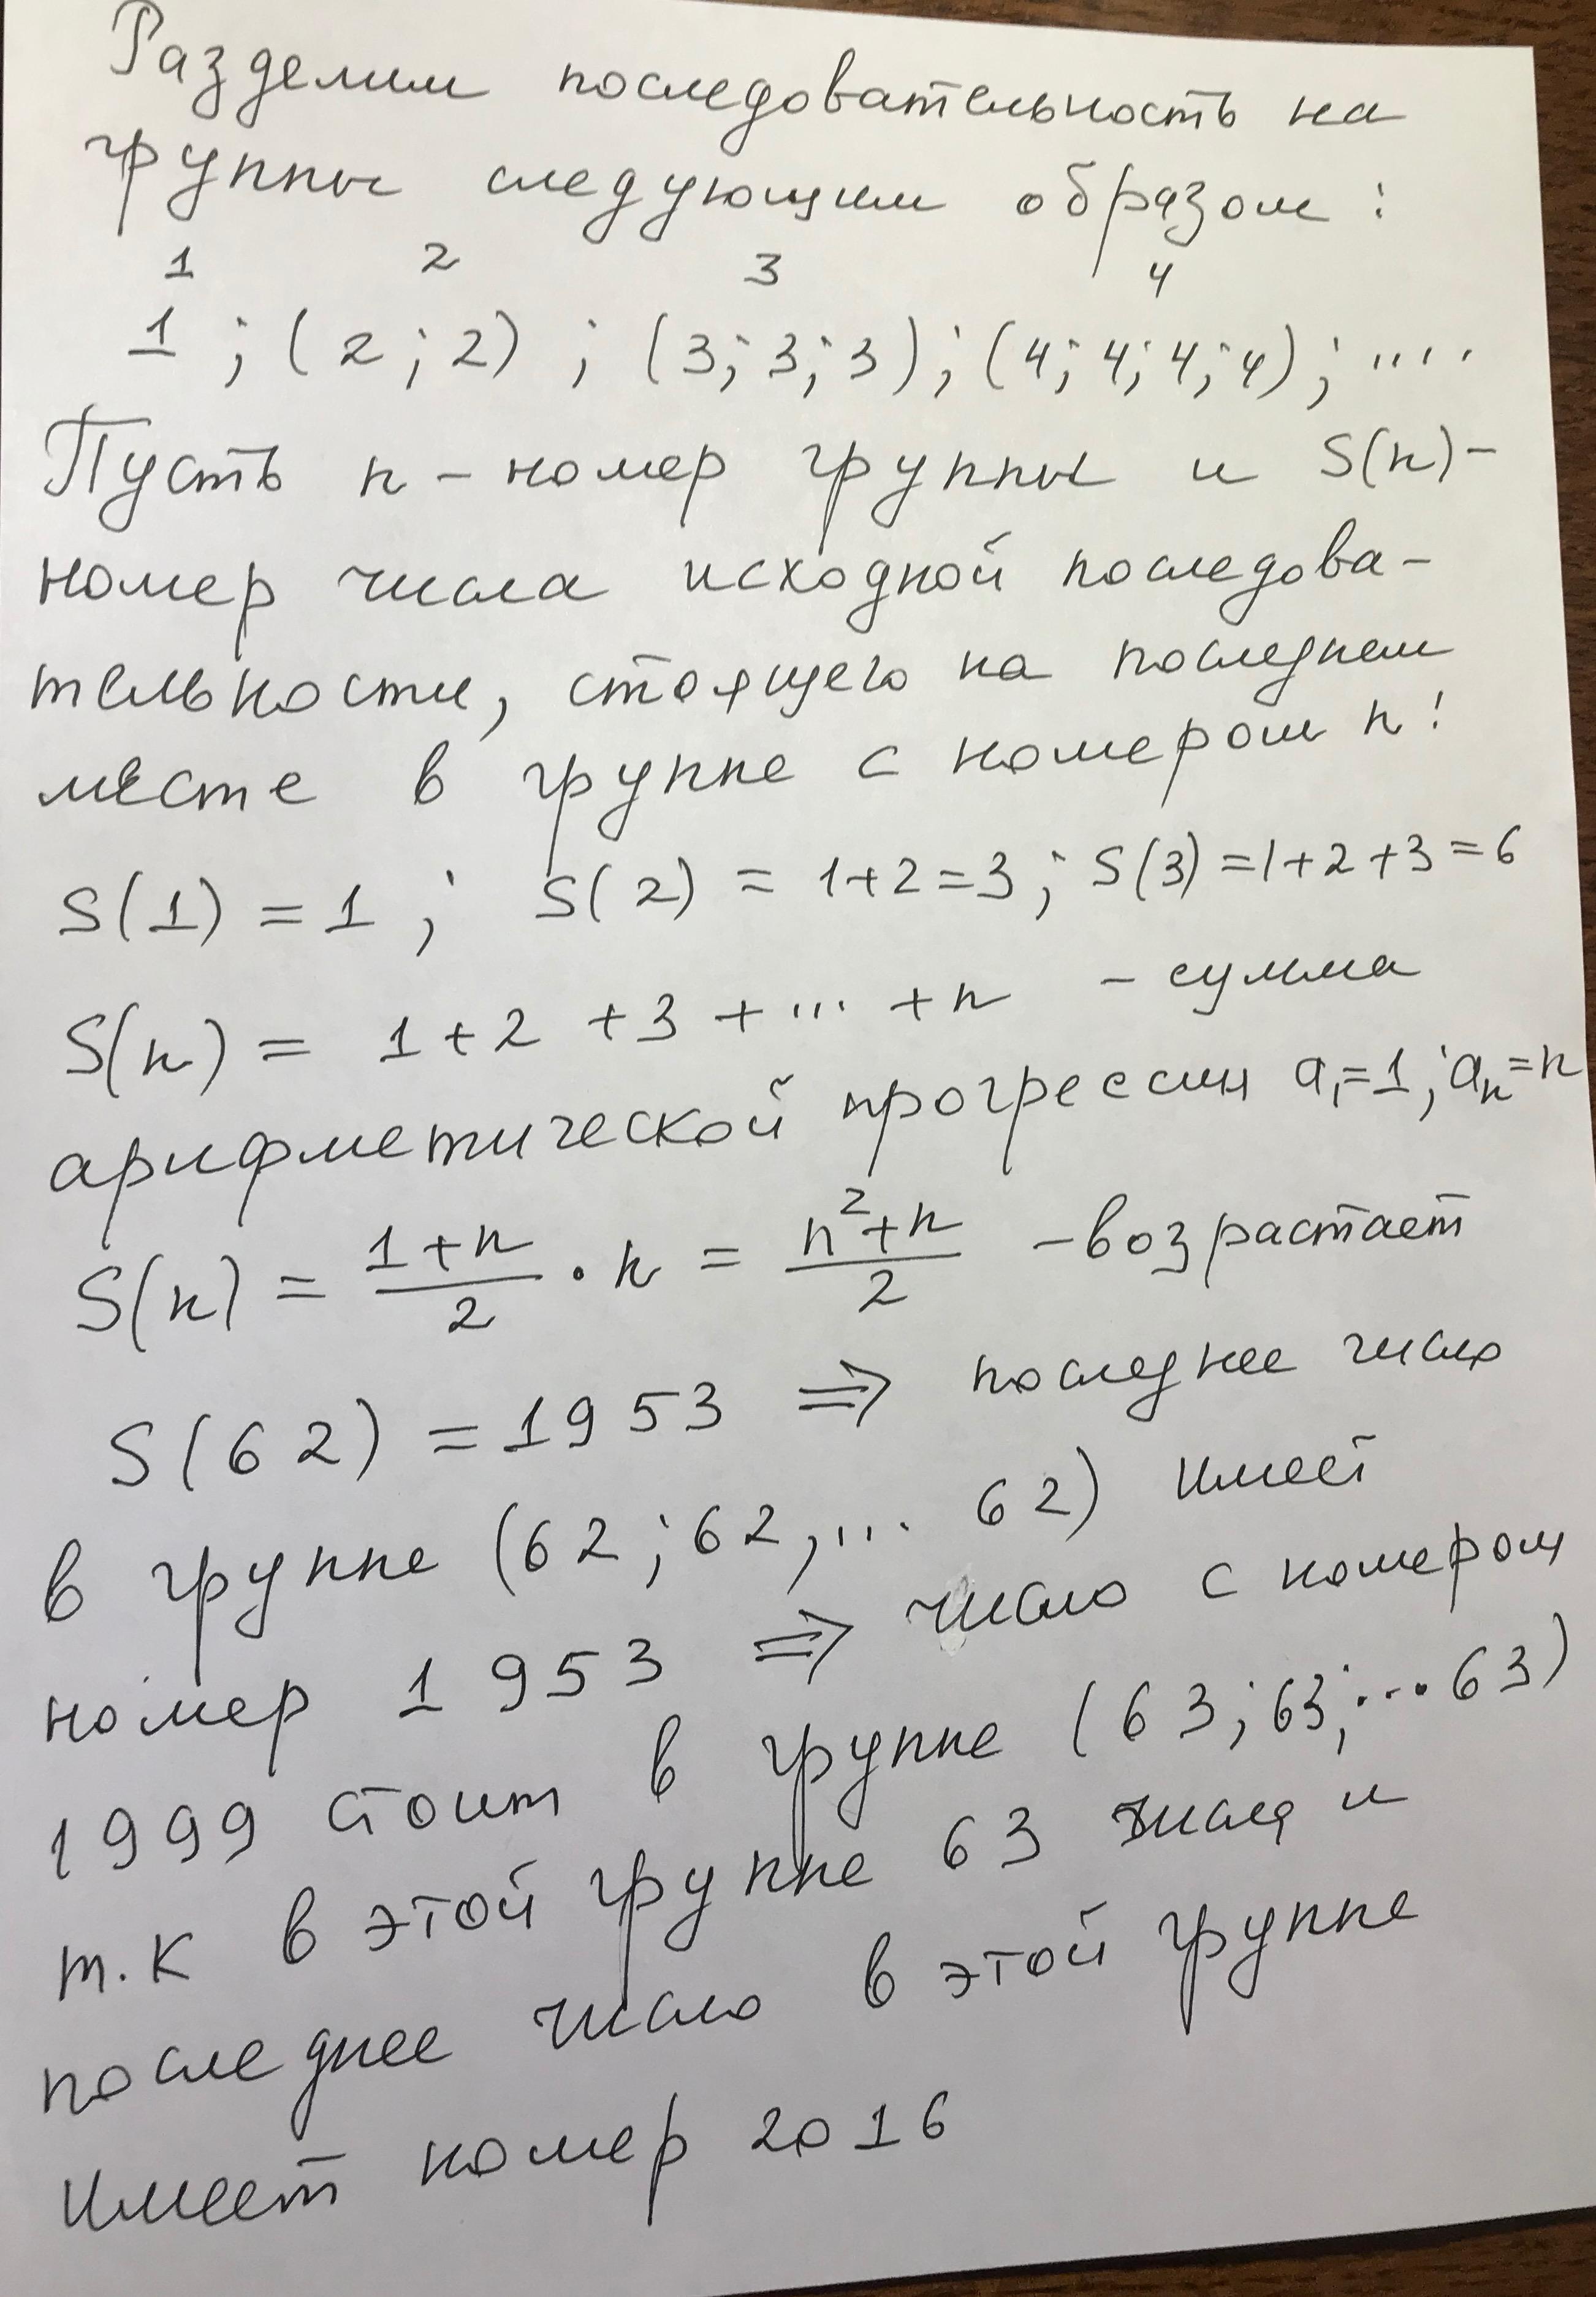 Разделим последовательность на
группы следующим образом:
1 2 3 4
1 ; (2 ; 2) ; (3; 3; 3); (4; 4; 4; 4); ....
Пусть n - номер группы и S(n) -
номер числа исходной последова-
тельности, стоящего на последнем
месте в группе с номером n:
S(1) = 1 ; S(2) = 1+2=3; S(3) =1+2+3=6
S(n) = 1+2 +3 + ... +n - сумма
арифметической прогрессии a₁=1; aₙ=n
S(n) = (1+n)/2 · n = (n²+n)/2 - возрастает
S(62) = 1953 ⇒ последнее число
в группе (62; 62, ... 62) имеет
номер 1953 ⇒ число с номером
1999 стоит в группе (63; 63; ... 63)
т.к в этой группе 63 числа и
последнее число в этой группе
имеет номер 2016